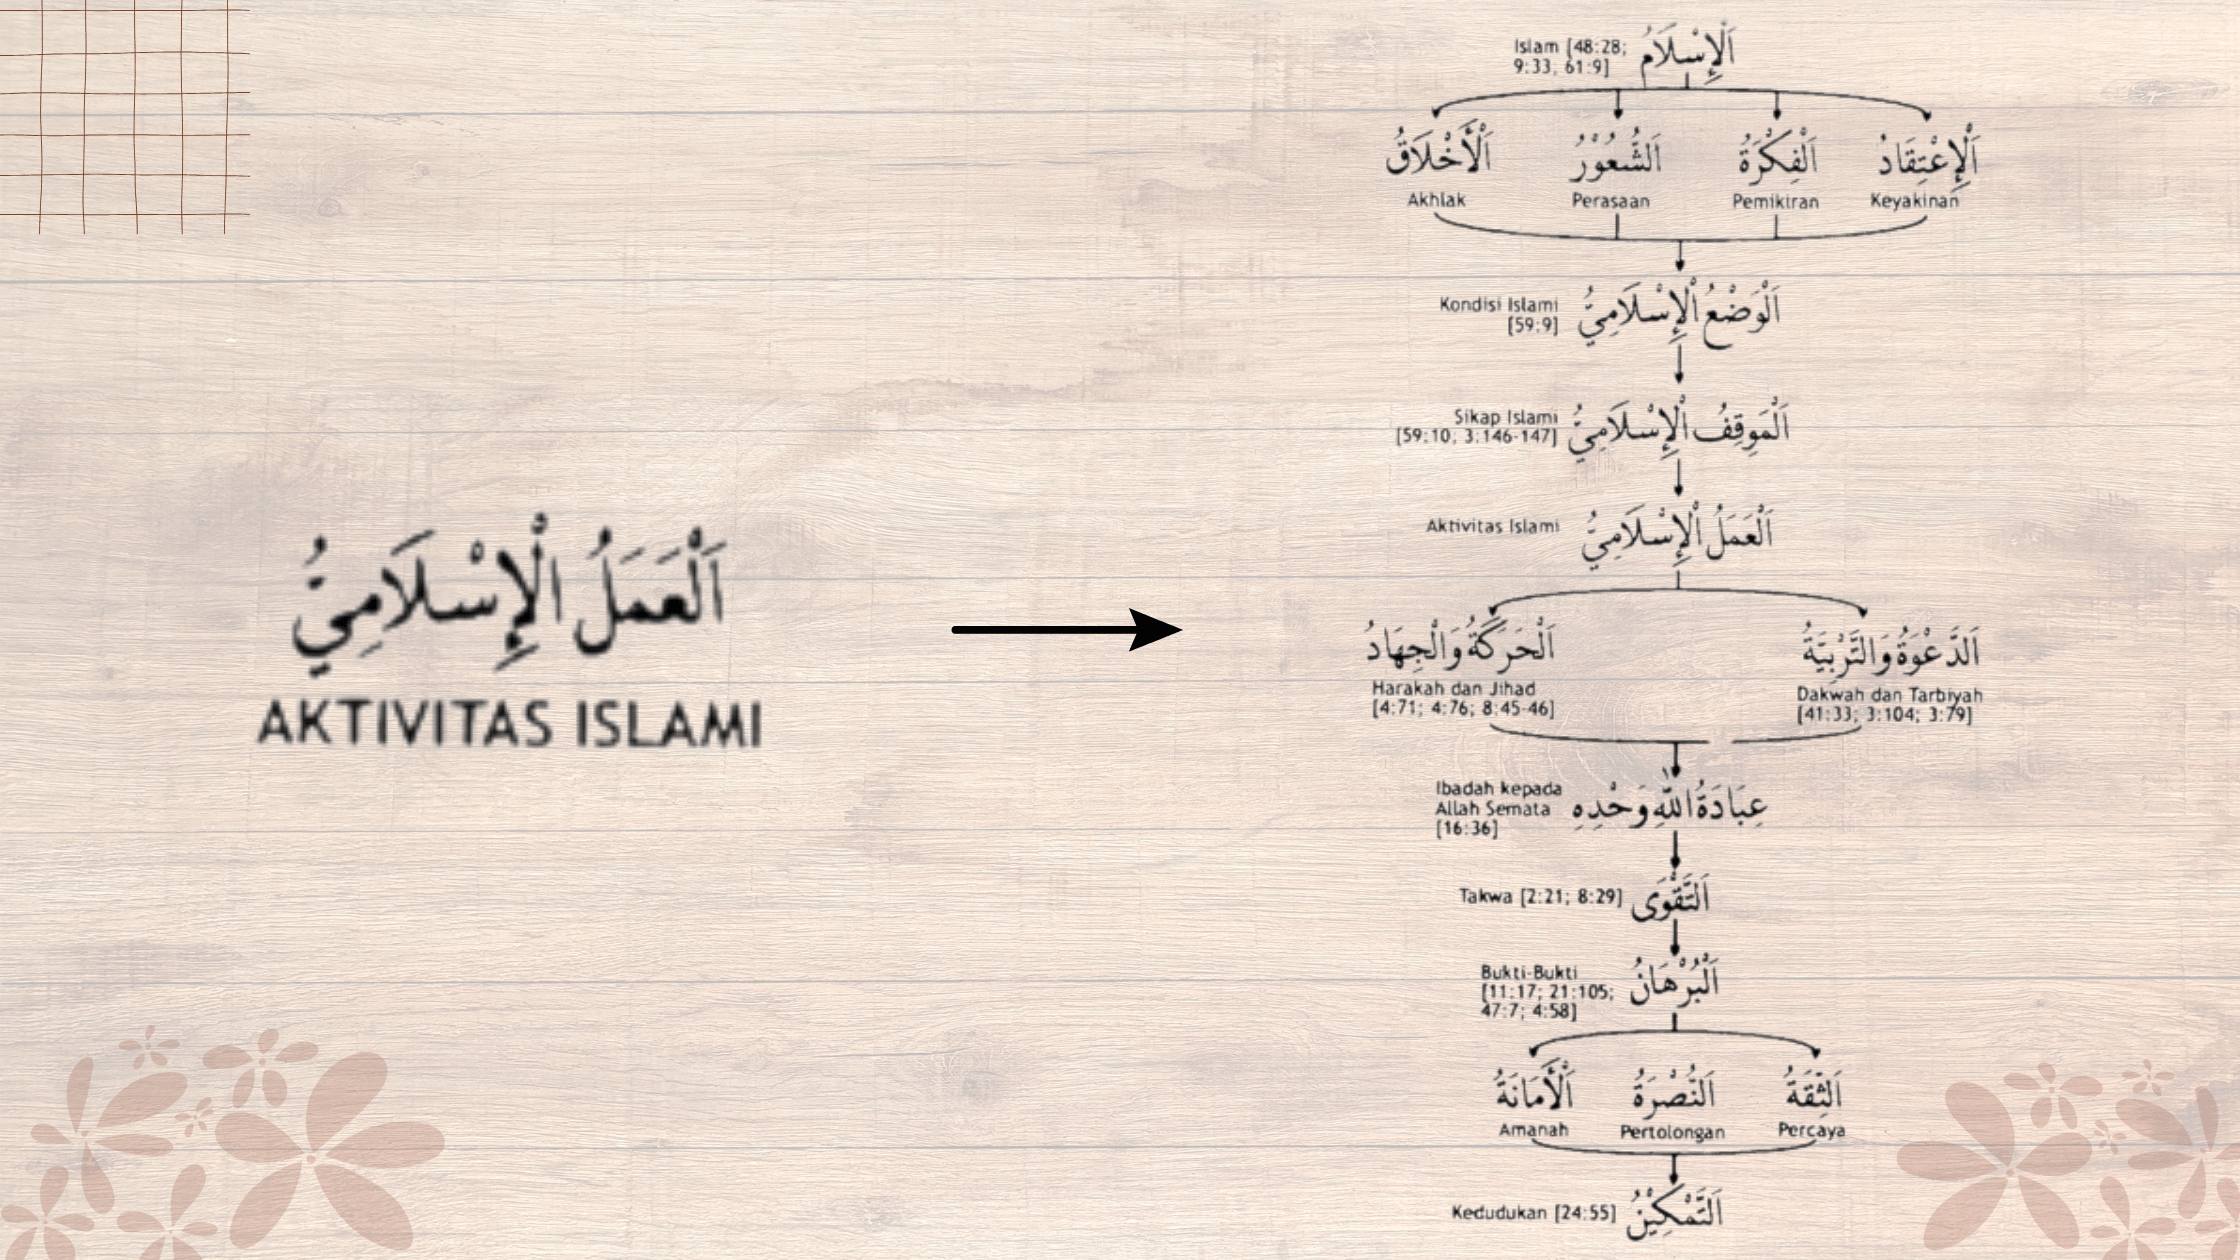 اَلْعَمَلُ الْإِسْلَامِيُّ
AKTIVITAS ISLAMI
Islam [48:28;
9:33, 61:9]
اَلْإِسْلَامُ
اَلْإِعْتِقَادُ
اَلْفِكْرَةُ
اَلشُّعُوْرُ
اَلْأَخْلَاقُ
Akhlak
Perasaan
Pemikiran
Keyakinan
Kondisi Islami
[59:9]
اَلْوَضْعُ الْإِسْلَامِيُّ
Sikap Islami
[59:10; 3:146-147]
اَلْمَوقِفُ الْإِسْلَامِيُّ
Aktivitas Islami
اَلْعَمَلُ الْإِسْلَامِيُّ
اَلدَّعْوَةُ وَالتَّرْبِيَّةُ
اَلْحَرَكَةُ وَالْجِهَادُ
Harakah dan Jihad
[4:71; 4:76; 8:45-46]
Dakwah dan Tarbiyah
[41:33; 3:104; 3:79]
Ibadah kepada
Allah Semata
[16:36]
عِبَادَةُ اللّٰهِ وَحْدِهِ
Takwa [2:21; 8:29]
اَلتَّقْوَى
Bukti-Bukti
[11:17; 21:105;
47:7; 4:58]
اَلْبُرْهَانُ
اَلثِّقَةُ
اَلنُّصْرَةُ
اَلْأَمَانَةُ
Amanah
Pertolongan
Percaya
Kedudukan [24:55]
اَلتَّمْكِيْنُ